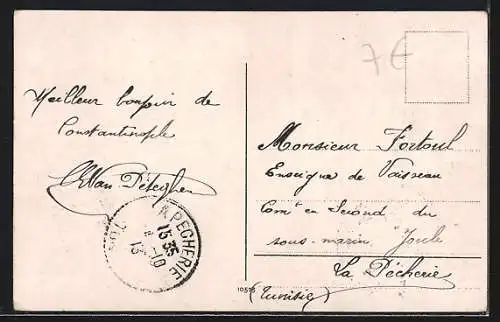 7€
Meilleur bonjour de
Constantinople
Monsieur Fortoul
Enseigne de Vaisseau
Comt en Second du
sous-marin "Joule"
La Pêcherie
(Tunisie)
LA PECHERIE
15 35
-10
13
10525